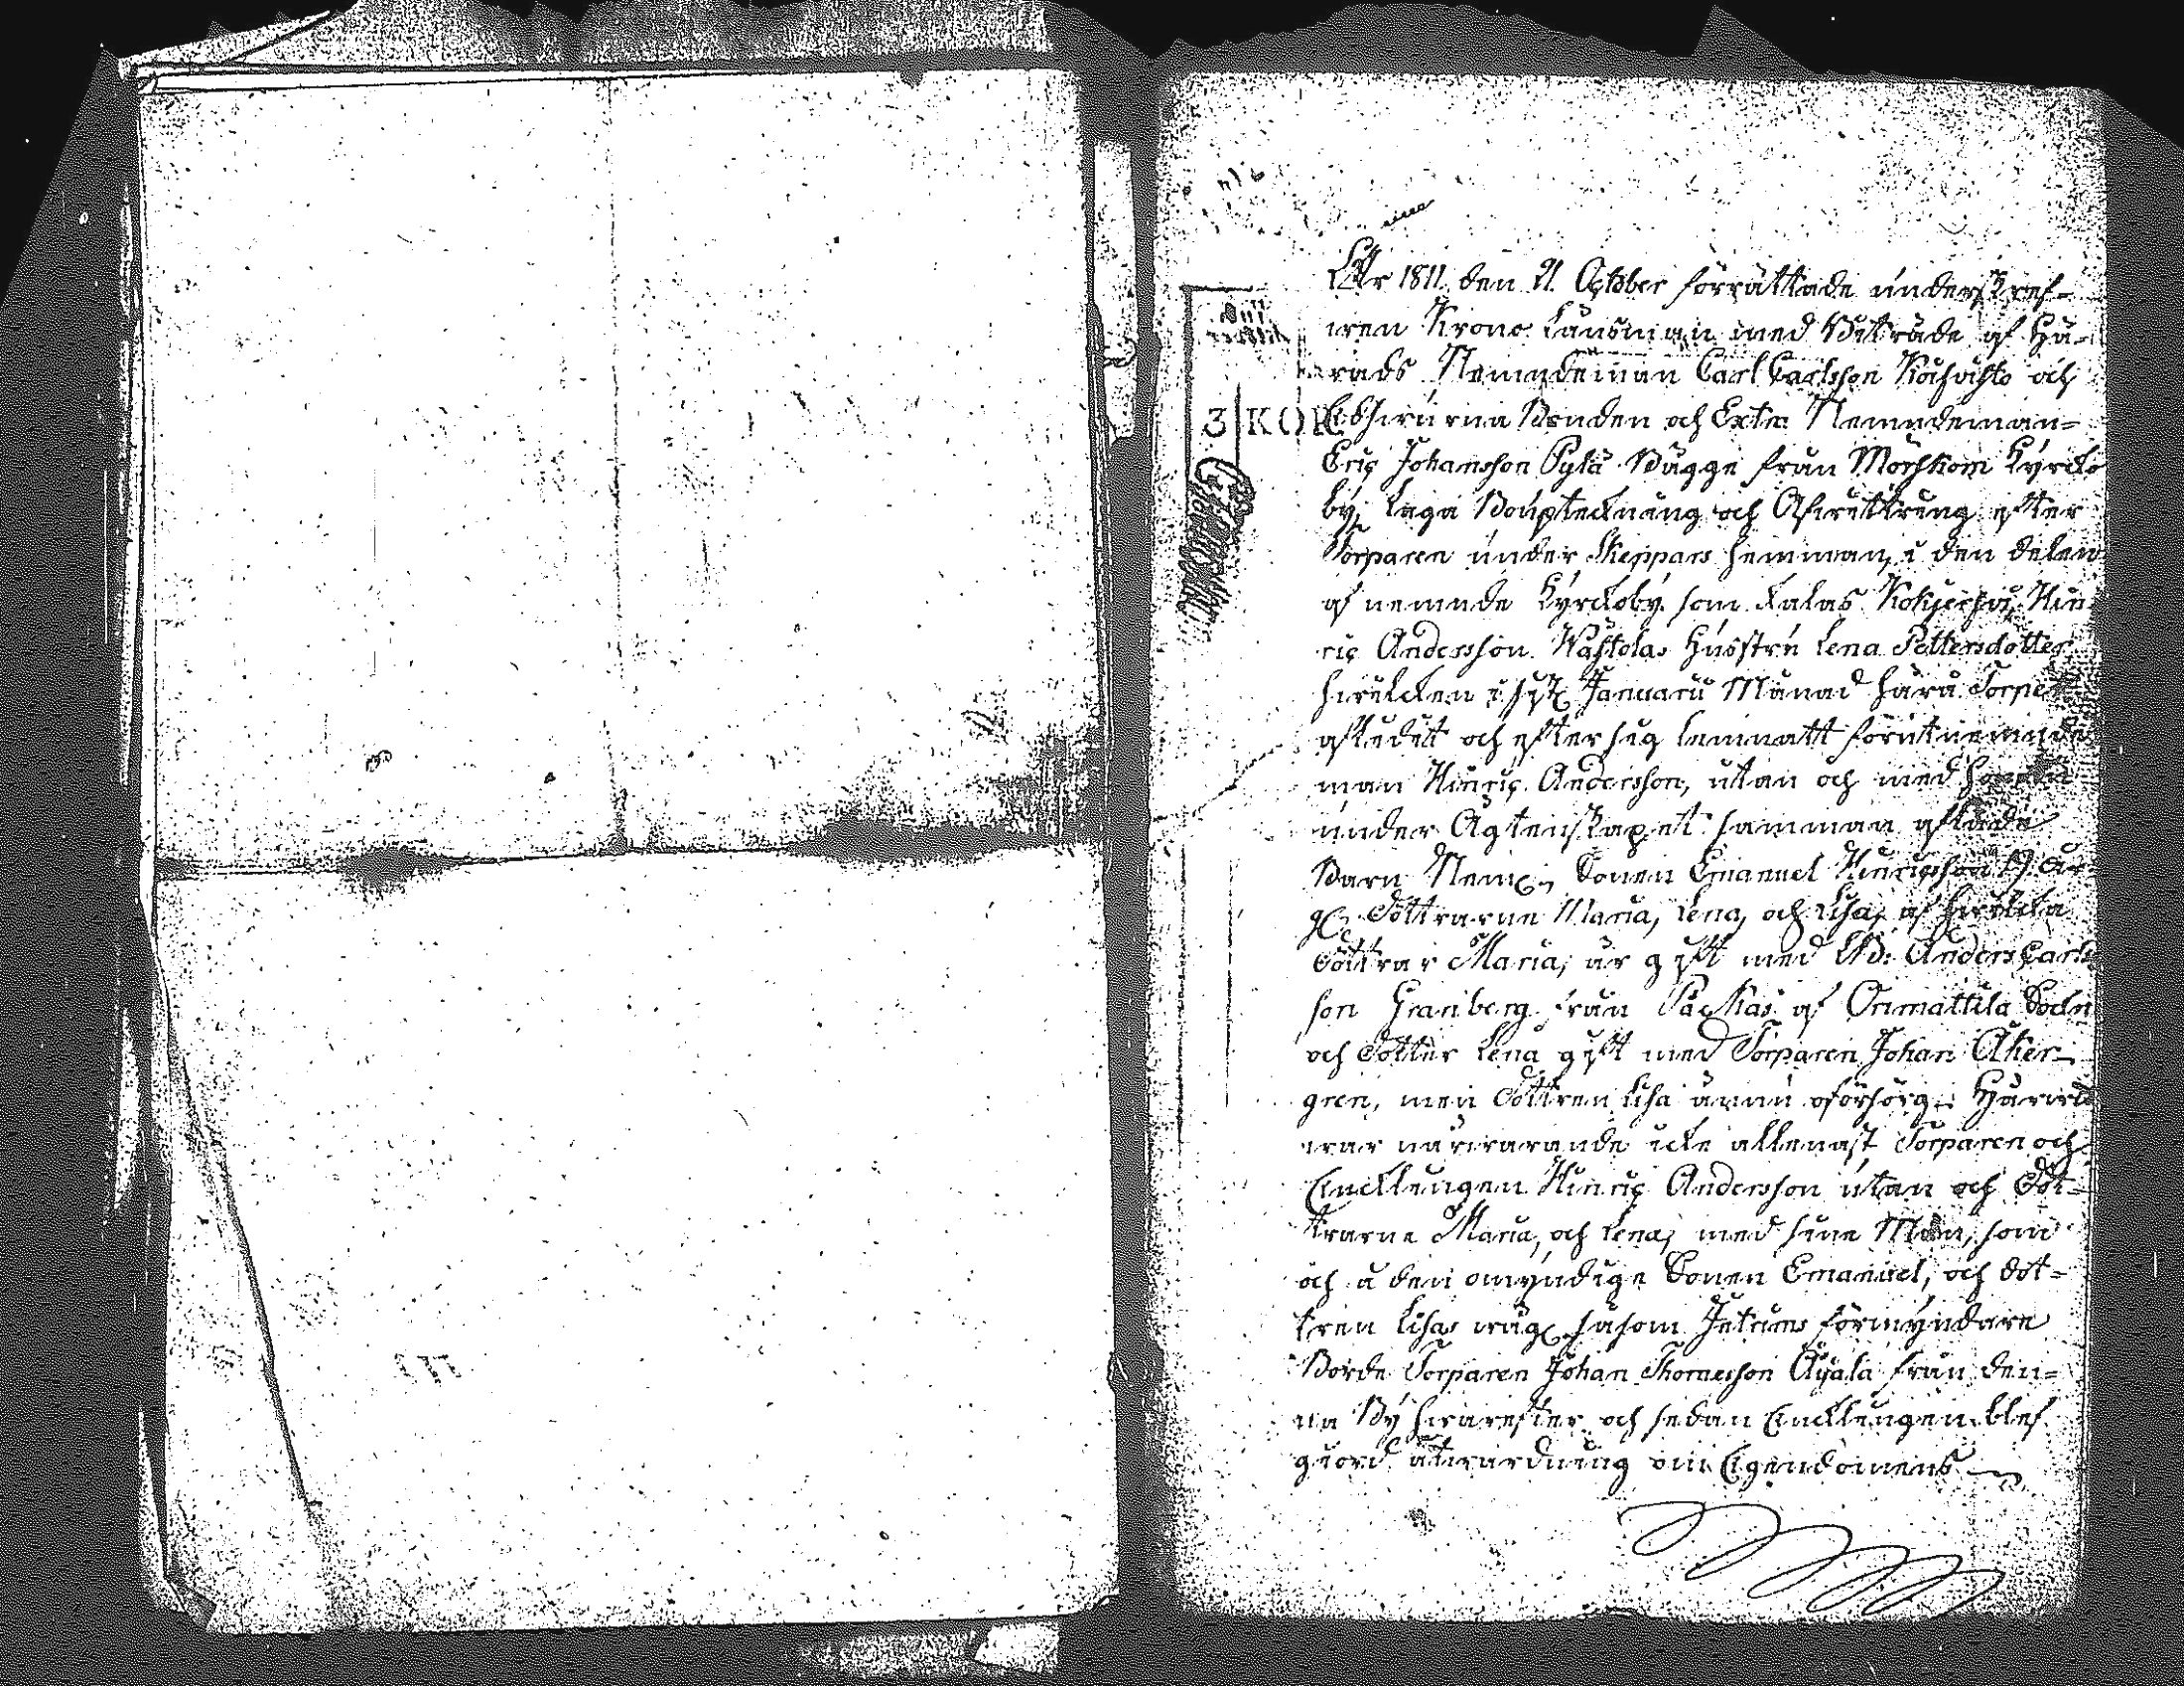 År 1811 den 21 October förrättade underskref-
wen Krono Länsman med Biträde af Hä-
rads Nemndeman Carl Carlsson och
3 KOP Bonden och Extra Nemndeman-
Eric Johansson Pylä Bägge från Mörskom Kyrcko
by, Laga Bouptecknäng och Afwittring efter
Torparen under Skeppars hemman, i den delen
af nemnde Kyrckoby som kalas Hin-
ric Andersson Hustru Lena Pettersdotter,
hwilcken i sist Januarii Månad härå Torpet
afledet och efter sig lemnatt förutnemnde
man Hinric Andersson, utan och med honom
under Ägtenskapet samman aflade
Barn Neml. Sonen Emanuel Hinricsson 19 år
gl. Döttrarne Maria, Lena, och Lisa, af hwilcka
döttrar Maria, är gift med Anders Carls
son Granberg från Packas af Orimattila Sockn
och dotter Lena gift med Torparen Johan Åker-
green, men dottren Lisa ännu oförsörg. Härwid
war närwarande icke allenast Torparen och
Encklingen Hinric Andersson utan och Döt-
trarne Maria, och Lena, med sine Män, som
och å den omyndige Sonen Emanuel, och dot-
tren Lisas wäg. såsom förmyndare
Torparen Johan Thomasson från den-
na By hwarefter och sedan Encklingen blef
giord åtwardning om Egendomens